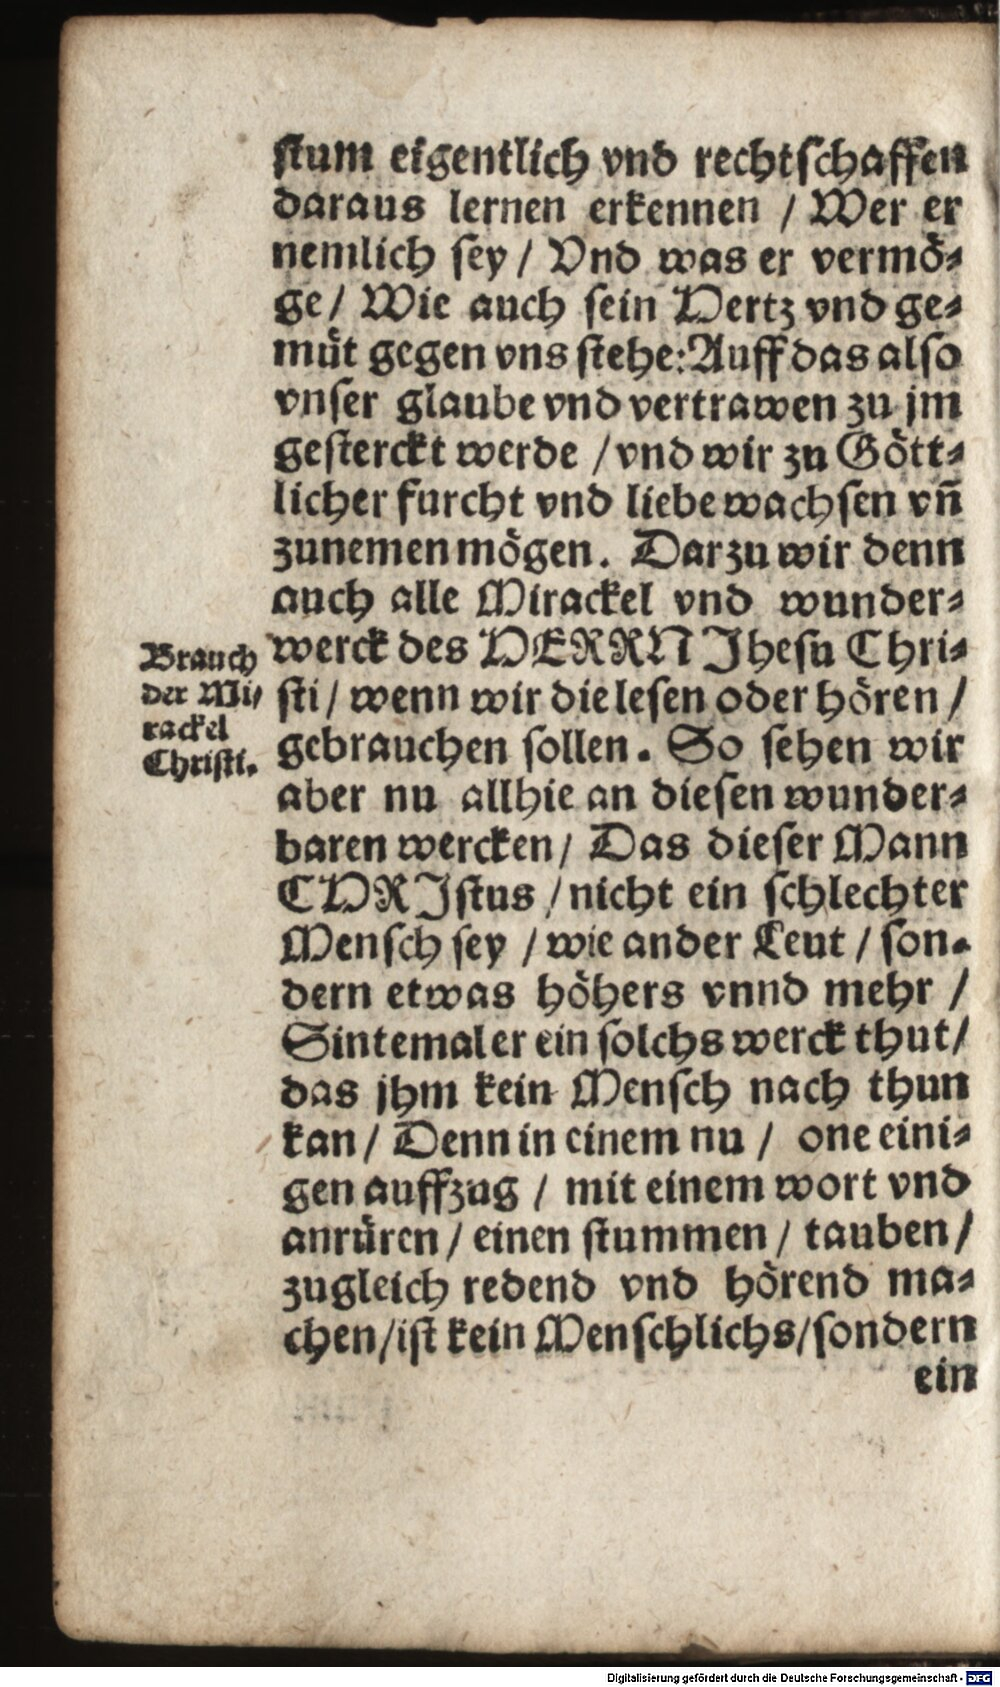 stum eigentlich vnd rechtschaffen
daraus lernen erkennen / Wer er
nemlich sey / Vnd was er vermö-
ge / Wie auch sein Hertz vnd ge-
müt gegen vns stehe: Auff das also
vnser glaube vnd vertrawen zu jm
gesterckt werde / vnd wir zu Gött-
licher furcht vnd liebe wachsen vñ
zunemen mögen. Darzu wir denn
auch alle Mirackel vnd wunder-
werck des HERRN Jhesu Chri-
sti / wenn wir die lesen oder hören /
gebrauchen sollen. So sehen wir
aber nu allhie an diesen wunder-
baren wercken / Das dieser Mann
CHRJstus / nicht ein schlechter
Mensch sey / wie ander Leut / son-
dern etwas höhers vnnd mehr /
Sintemal er ein solchs werck thut /
das jhm kein Mensch nach thun
kan / Denn in einem nu / one eini-
gen auffzug / mit einem wort vnd
anrüren / einen stummen / tauben /
zugleich redend vnd hörend ma-
chen / ist kein Menschlichs / sondern
ein
Brauch
der Mi-
rackel
Christi.
Digitalisierung gefördert durch die Deutsche Forschungsgemeinschaft - DFG